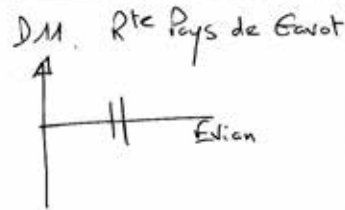 DM. Rte Pays de Gavot
Evian